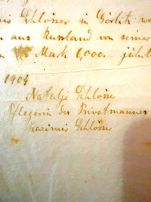 Schlösser in Görlitz
aus Russland von seiner
Mark 6,000.- jährl
1904
Natalie Schlösser
Pflegerin des Privatmannes
Kasimir Schlösser